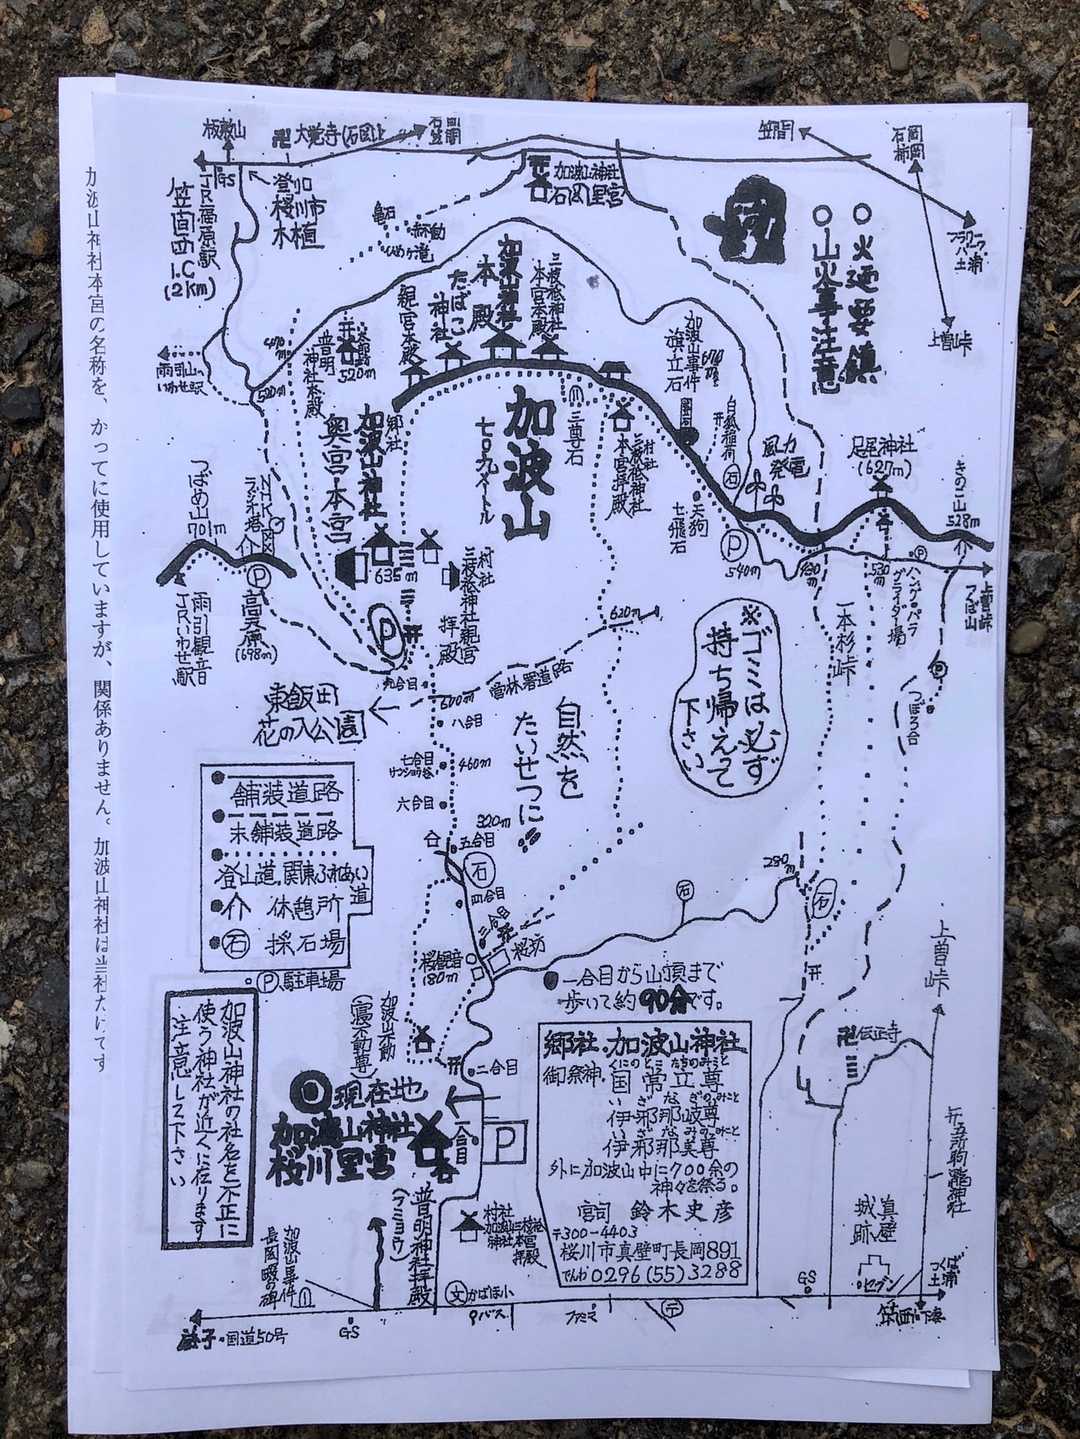 加波山神社本宮の名称を、かってに使用していますが、関係ありません。加波山神社は当社だけです
板敷山
卍 大覚寺(石岡)
笠間
石岡
加波山神社
石岡里宮
登山
桜川市
GS
JR福原駅
笠間西I.C
(12km)
亀石
○火廼要鎮
○山火事注意
フラワーパーク
土浦
上曽峠
加波山神社
本殿
たばこ
神社
親宮本殿
三枝祇神社
本宮本殿
普明
神社本殿
520m
470m
520m
加波山事件
旗立石
白狐稲荷
三尊石
加波山
七〇九メートル
村社
三枝祇神社
本宮拝殿
天狗
七飛石
風力
発電
足尾神社
(627m)
きのこ山
528m
郷社
加波山神社
奥宮本宮
635m
村社
三枝祇神社親宮
拝殿
つばめ山
701m
NHK
ラジオ塔
雨引観音
JRいわせ駅
高天原
(698m)
P
540m
480m
530m
ハング・パラ
グライダー場
上曽峠
つくば山
一本杉峠
つぼろ台
620m
営林署道路
600m
九合目
八合目
七合目
460m
六合目
320m
五合目
四合目
三合目
東飯田
花の入公園
※ゴミは必ず
持ち帰えって
下さい
自然を
たいせつに
舗装道路
未舗装道路
登山道.関東ふれあい道
介 休憩所
石 採石場
P.駐車場
280m
石
桜坊
桜観音
180m
一合目から山頂まで
歩いて約90分です。
加波山神社の社名を不正に
使う神社が近くに在ります
注意して下さい
加波山不動
(寝不動尊)
二合目
現在地
加波山神社
桜川里宮
一合目
P
郷社.加波山神社
御祭神.国常立尊
くにのとこたちのみこと
伊邪那岐尊
いざなぎのみこと
伊邪那美尊
いざなみのみこと
外に加波山中に700余の
神々を祭る。
宮司 鈴木史彦
〒300-4403
桜川市真壁町長岡891
でんわ 0296(55)3288
普明神社拝殿
(フミョウ)
村社
加波山三枝祇
神社本宮
拝殿
加波山事件
長岡畷の碑
文 かばほ小
バス
ファミマ
〒
GS
セブン
真壁
城跡
卍 伝正寺
上曽峠
五所駒瀧神社
つくば
土浦
筑西・下妻
益子・国道50号
GS